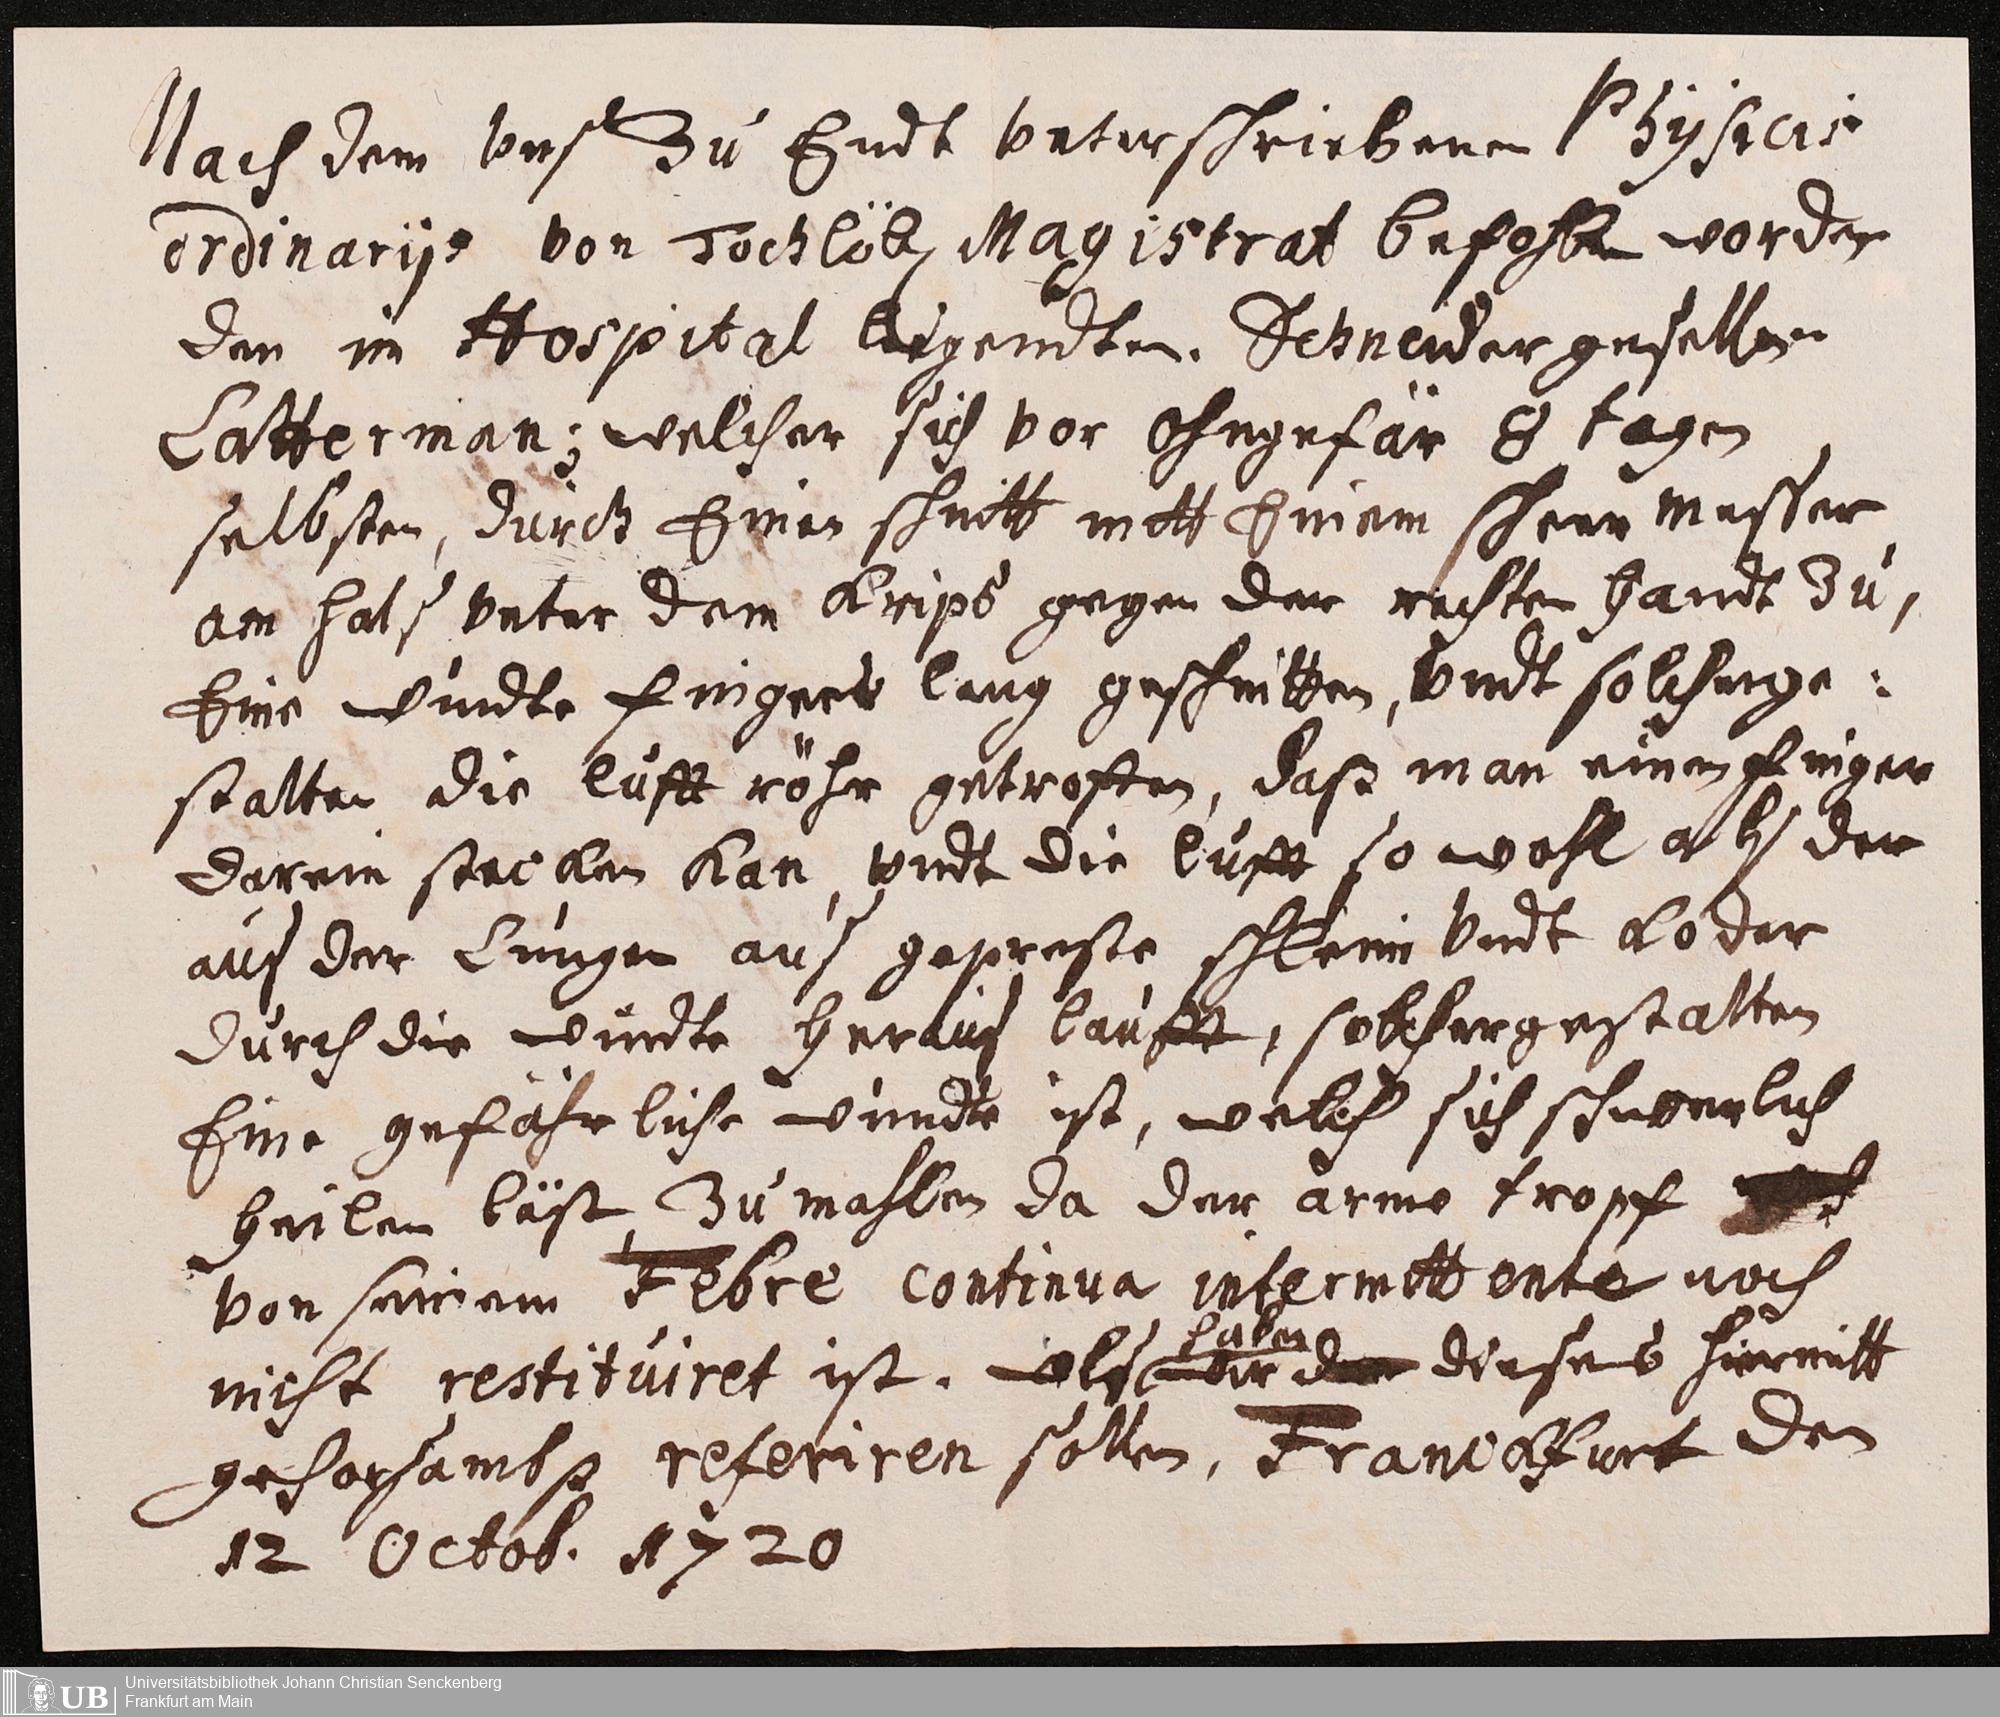 Nach dem vnß Zu Endt vnterschriebenen Physicis
ordinarijs von Hochlöbl. Magistrat befohlen worden
den im Hospital ligendten Schneider gesellen
Latterman; welcher sich vor ohngefär 8 tagen
selbsten, durch Einen schnitt mitt Einem scheer messer
am halß vnter dem Krips gegen der rechten handt Zu,
Eine wundte fingers lang geschnitten, vndt solcherge:
stalten die lufft röhr getroffen, daß man einen finger
darein stecken kan, vndt die lufft so wohl alß der
auß der Lungen auß gepreste schleim vndt Koder
durch die wundte herauß laufft, solchergestalten
Eine gefährliche wundte ist, welche sich schwerlich
heilen läst, Zumahlen da der arme tropf
von seinem Febre continua intermittente noch
nicht restituiret ist. alß haben wir dieses hiermitt
gehorsambst referiren sollen, Franckfurt den
12 Octob. 1720
Universitätsbibliothek Johann Christian Senckenberg
UB Frankfurt am Main